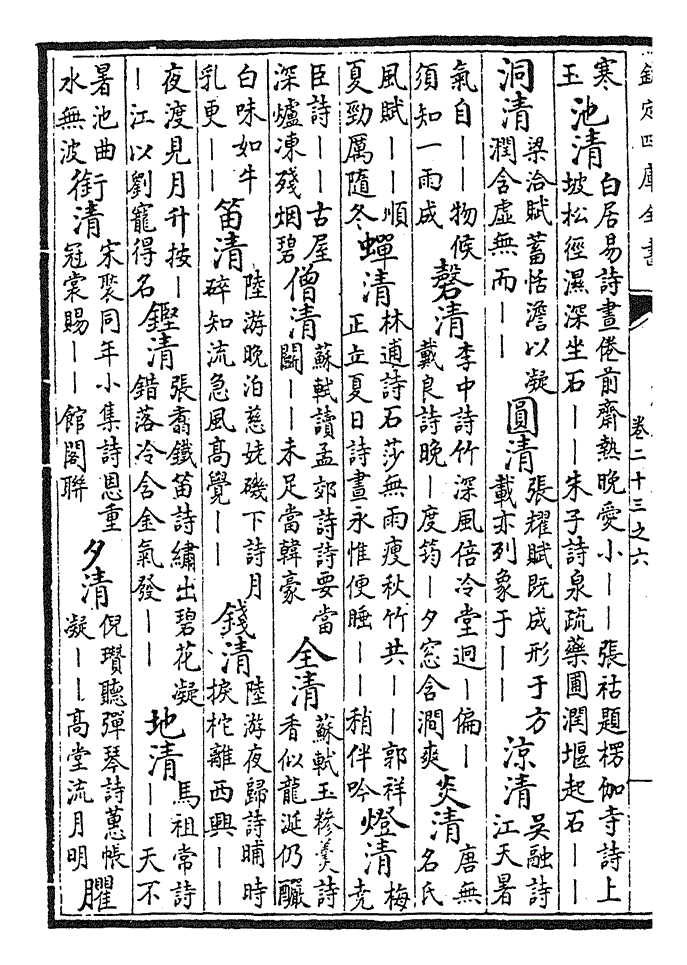 欽定四庫全書 卷二十三之六
寒玉池清白居易詩晝倦前齋熱晚愛小——張祜題楞伽寺詩上坡松徑濕深坐石——朱子詩泉疏藥圃潤堰起石——
洞清梁洽賦蓄恬澹以凝潤含虛無而——圓清張耀賦既成形于方載亦列象于——涼清吳融詩江天暑
氣自——物候須知一雨成磬清李中詩竹深風倍冷堂迥—偏—戴良詩晚—度筠—夕窓含澗爽炎清唐無名氏
風賦——順夏勁厲隨冬蟬清林逋詩石莎無雨瘦秋竹共——郭祥正立夏日詩晝永惟便睡——稍伴吟燈清梅堯
臣詩——古屋深爐凍殘烟碧僧清蘇軾讀孟郊詩詩要當鬬——未足當韓豪全清蘇軾玉糝羹詩香似龍涎仍釅
白味如牛乳更——笛清陸游晚泊慈姥磯下詩月碎知流急風高覺——錢清陸游夜歸詩晡時捩柁離西興——
夜渡見月升按——江以劉寵得名鏗清張翥鐵笛詩繡出碧花凝錯落冷含金氣發——地清馬祖常詩——天不
暑池曲水無波銜清宋褧同年小集詩恩重冠裳賜——館閣聯夕清倪瓚聽彈琴詩蕙帳凝——高堂流月明臞